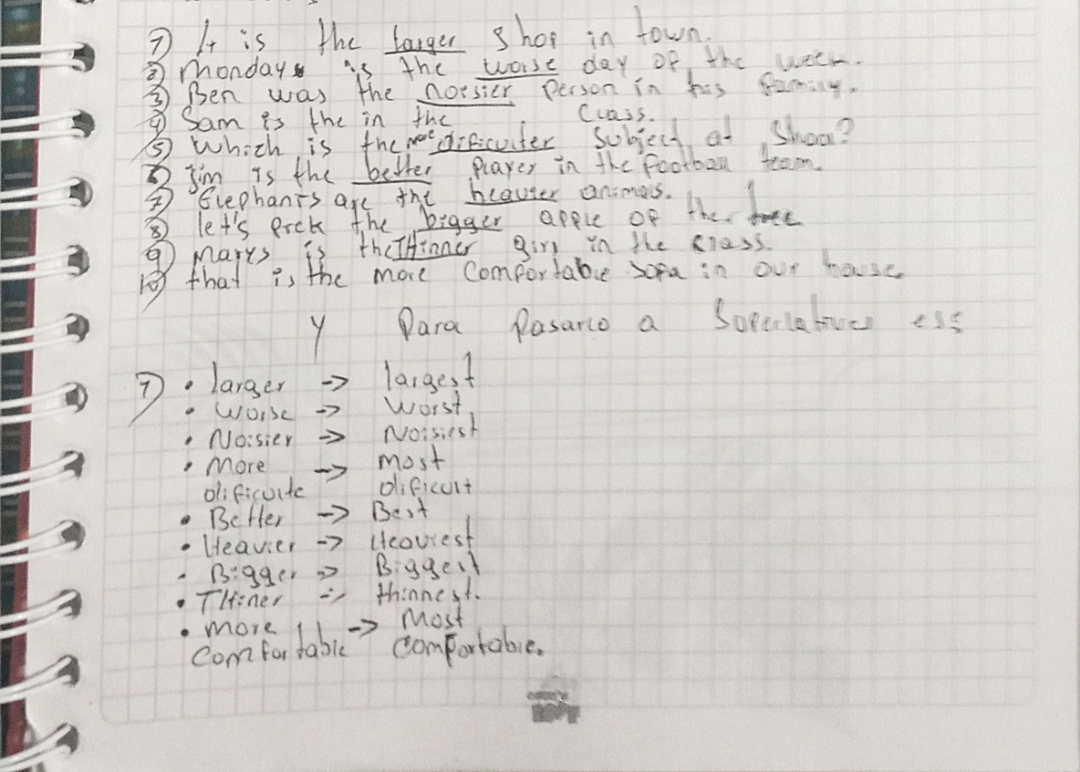 1) It is the larger shop in town.
2) Mondays is the worse day of the week.
3) Ben was the noisier person in his family.
4) Sam is the in the class.
5) Which is the more dificulter subject at shool?
6) Jim is the better player in the football team.
7) Elephants are the heavier animals.
8) let's pick the bigger apple of the tree
9) Marys is the THinner girl in the class.
10) that is the more Comfortable sofa in our house
y Para Pasarlo a Superlatives es:
1) • larger -> largest
• Worse -> Worst
• Noisier -> Noisiest
• More -> most
dificulte dificult
• Better -> Best
• Heavier -> Heaviest
- Bigger -> Biggest
• THiner -> thinnest.
• more -> Most
Comfortable Comfortable.